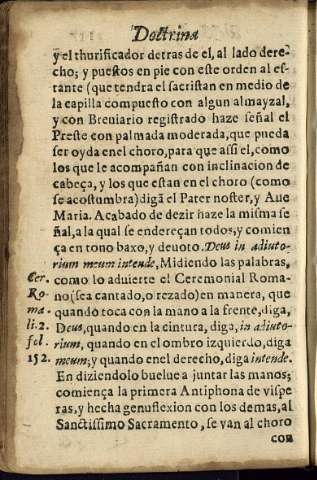 Doctrina
y el thurificador detras de el, al lado dere-
cho; y puestos en pie con este orden al es-
trante (que tendra el sacristan en medio de
la capilla compuesto con algun almayzal,
y con Breuiario registrado haze señal el
Preste con palmada moderada, que pueda
ser oyda enel choro, para que assi el, como
los que le acompañan con inclinacion de
cabeça, y los que estan en el choro (como
se acostumbra) digã el Pater noster, y Aue
Maria. Acabado de dezir haze la misma se
ñal, a la qual se endereçan todos, y comien
ça en tono baxo, y deuoto. Deus in adiuto-
rium meum intende, Midiendo las palabras,
Cer. como lo aduierte el Ceremonial Roma-
Ro- no (sea cantado, o rezado) en manera, que
ma. quando toca con la mano a la frente, diga,
li. 2. Deus, quando en la cintura, diga, in adiuto-
fol. rium, quando en el ombro izquierdo, diga
152. meum; y quando en el derecho, diga intende.
En diziendolo buelue a juntar las manos;
comiença la primera Antiphona de vispe
ras, y hecha genuflexion con los demas, al
Sanctissimo Sacramento, se van al choro
con